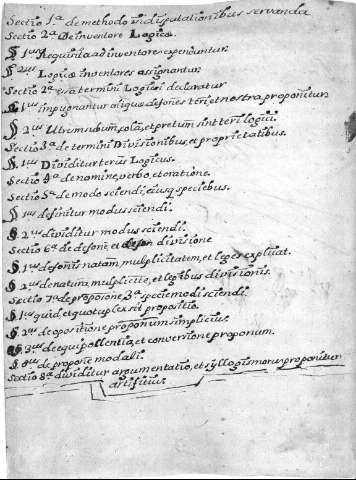 Sectio 1ª de methodo in disputationibus servanda
Sectio 2ª De inventore Logicæ.
§ 1us Requisita ad inventore expenduntur.
§ 2us Logicæ inventores assignantur.
Sectio 2ª essa termini Logici declaratur
§ 1us impugnantur aliquæ defones teri, et nostra proponitur
§ 2us Utrum subum, copla, et pretum sint teri logici
Sectio 3ª de termini Divisionibus, et proprietatibus.
§. 1us Dividitur terus Logicus.
Sectio 4ª de nomine, verbo, et oratione.
Sectio 5ª de modo sciendi, eiusq speciebus.
§ 1us definitur modus sciendi.
§. 2us dividitur modus sciendi.
Sectio 6ª de defone, et divisione
§. 1us defonis natam, mulplicitatem, et leges explicat.
§ 2us de natura, mulplicite, et legibus divisionis.
Sectio 7ª de propsone 3ª specie modi sciendi.
§. 1us quid, et quotuplex sit propositio.
§. 2us de oppositione proponum simplicius.
§ 3us de equipollentia, et conversione proponum.
§. 4us de propone modali.
Sectio 8ª dividitur argumentatio, et syllogismorum proponitur
artificius